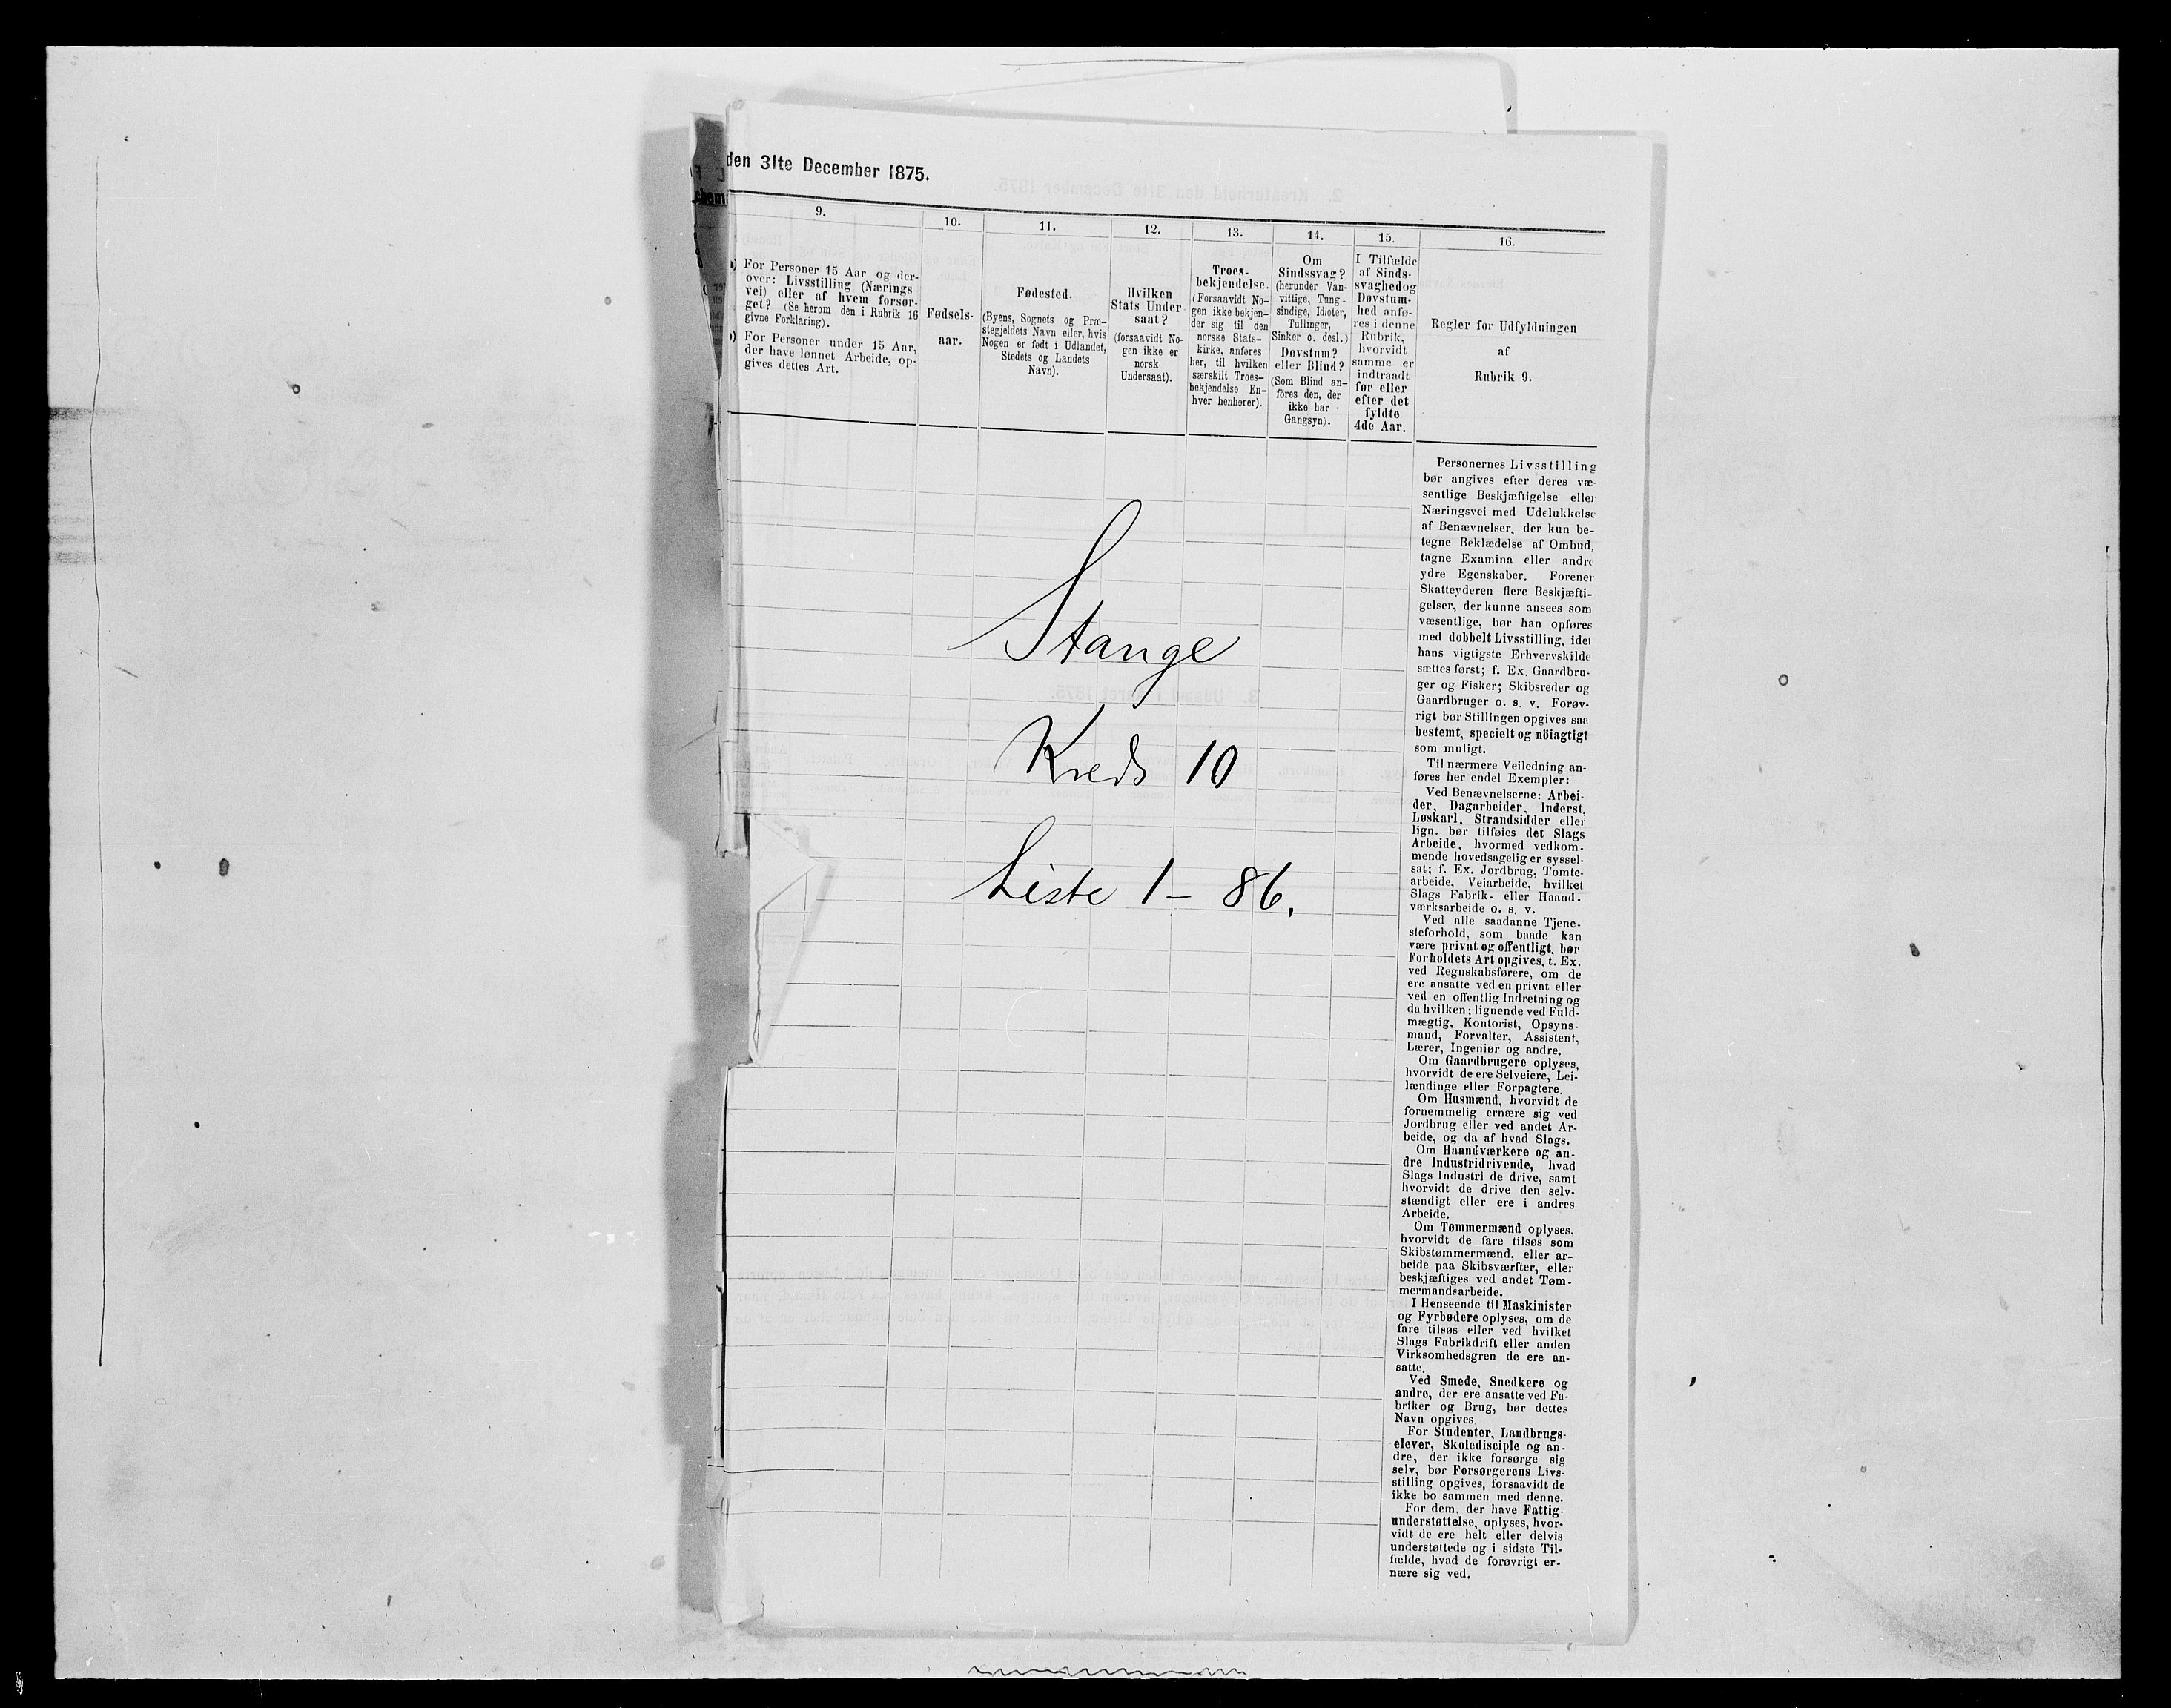 den 31te December 1875.
9.
10.
11.
12.
13.
14.
15.
16.
For Personer 15 Aar og der-
over: Livsstilling (Nærings
vei) eller af hvem forsør-
get? (Se herom den i Rubrik 16
givne Forklaring).
For Personer under 15 Aar,
der have lønnet Arbeide, op-
gives dettes Art.
Fødsels-
aar.
Fødested.
(Byens, Sognets og Præ-
stegjeldets Navn eller, hvis
Nogen er født i Udlandet,
Stedets og Landets
Navn).
Hvilken
Stats Under
saat?
(forsaavidt No-
gen ikke er
norsk
Undersaat).
Troes-
bekjendelse.
(Forsaavidt No-
gen ikke bekjen-
der sig til den
norske Stats-
kirke, anføres
her, til hvilken
særskilt Troes-
bekjendelse En-
hver henhører).
Om
Sindssvag?
(herunder Van-
vittige, Tung-
sindige, Idioter,
Tullinger,
Sinker o. desl.)
Døvstum?
eller Blind?
(Som Blind an-
føres den, der
ikke har
Gangsyn).
I Tilfælde
af Sinds-
svaghedog
Døvstum-
hed anfø-
res i denne
Rubrik,
hvorvidt
samme er
indtraadt
før eller
efter det
fyldte
4de Aar.
Regler for Udfyldningen
af
Rubrik 9.
Stange
Kreds 10
Liste 1 - 86.
Personernes Livsstilling
bør angives efter deres væ-
sentlige Beskjæftigelse eller
Næringsvei med Udelukkelse
af Benævnelser, der kun be-
tegne Beklædelse af Ombud,
tagne Examina eller andre
ydre Egenskaber. Forener
Skatteyderen flere Beskjæfti-
gelser, der kunne ansees som
væsentlige, bør han opføres
med dobbelt Livsstilling, idet
hans vigtigste Erhvervskilde
sættes først; f. Ex. Gaardbru-
ger og Fisker; Skibsreder og
Gaardbruger o. s. v. Forøv-
rigt bør Stillingen opgives saa
bestemt, specielt og nöiagtigt
som muligt.
Til nærmere Veiledning an-
føres her endel Exempler:
Ved Benævnelserne: Arbei-
der, Dagarbeider, Inderst,
Løskarl, Strandsidder eller
lign. bør tilføies det Slags
Arbeide, hvormed vedkom-
mende hovedsagelig er syssel-
sat; f. Ex. Jordbrug, Tomte-
arbeide, Veiarbeide, hvilket
Slags Fabrik- eller Haand-
værksarbeide o. s. v.
Ved alle saadanne Tjene-
steforhold, som baade kan
være privat og offentligt, bør
Forholdets Art opgives, t. Ex.
ved Regnskabsførere, om de
ere ansatte ved en privat eller
ved en offentlig Indretning og
da hvilken; lignende ved Fuld-
mægtig, Kontorist, Opsyns-
mand, Forvalter, Assistent,
Lærer, Ingeniør og andre.
Om Gaardbrugere oplyses,
hvorvidt de ere Selveiere, Lei-
lændinge eller Forpagtere.
Om Husmænd, hvorvidt de
fornemmelig ernære sig ved
Jordbrug eller ved andet Ar-
beide, og da af hvad Slags.
Om Haandværkere og an-
dre Industridrivende, hvad
Slags Industri de drive, samt
hvorvidt de drive den selv-
stændigt eller ere i andres
Arbeide.
Om Tømmermænd oplyses,
hvorvidt de fare tilsøs som
Skibstømmermænd, eller ar-
beide paa Skibsværfter, eller
beskjæftiges ved andet Tøm-
mermandsarbeide.
I Henseende til Maskinister
og Fyrbødere oplyses, om de
fare tilsøs eller ved hvilket
Slags Fabrikdrift eller anden
Virksomhedsgren de ere an-
satte.
Ved Smede, Snedkere og
andre, der ere ansatte ved Fa-
briker og Brug, bør dettes
Navn opgives.
For Studenter, Landbrugs-
elever, Skoledisciple og an-
dre, der ikke forsørge sig
selv, bør Forsørgerens Livs-
stilling opgives, forsaavidt de
ikke bo sammen med denne.
For dem, der have Fattig-
understøttelse, oplyses, hvor-
vidt de ere helt eller delvis
understøttede og i sidste Til-
fælde, hvad de forøvrigt er-
nære sig ved.